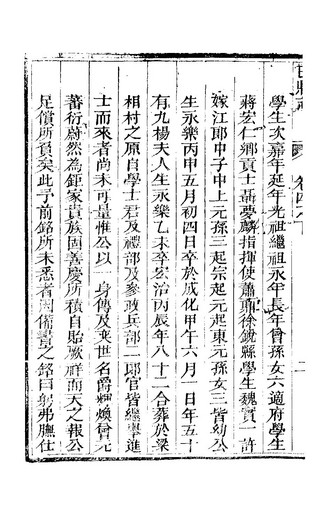 學生次嘉年延年光祖繼祖永年長年曾孫女六適府學生
蔣宏仁鄉貢士聶夢麟指揮使蕭鼐徐銳縣學生魏實一許
嫁江郎中子中上元孫三起宗起元起東元孫女三皆幼公
生永樂丙申五月初四日卒於成化甲午六月一日年五十
有九楊夫人生永樂乙未卒宏治丙辰年八十二合葬於梁
相村之原自學士君及禮部及參政兵部二郎官皆繼舉進
士而來者尚未可量惟公以一身傳及奕世名爵輝煥曾元
蕃衍蔚然為鉅家貴族固善慶所積自貽厥祥而天之報公
足償所負矣此予前銘所未悉者因備書之銘曰躬弗膴仕